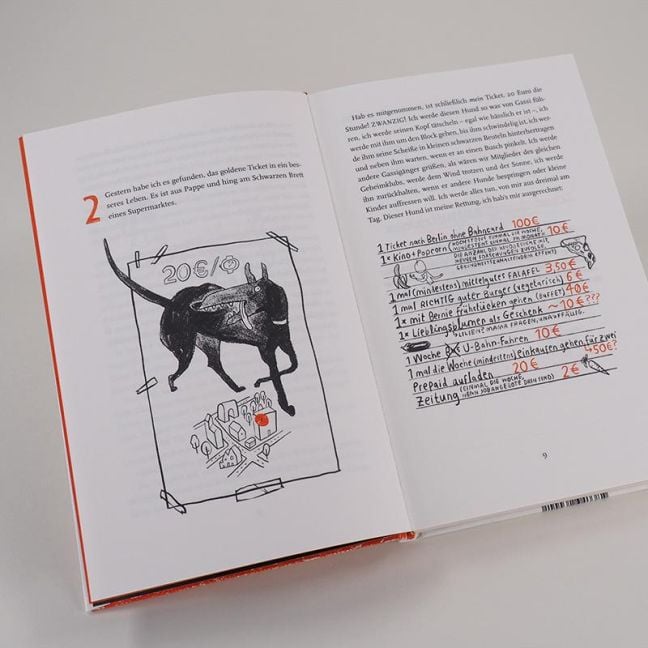 2
Gestern habe ich es gefunden, das goldene Ticket in ein bes-
seres Leben. Es ist aus Pappe und hing am Schwarzen Brett
eines Supermarktes.
20€/
Hab es mitgenommen, ist schließlich mein Ticket. 20 Euro die
Stunde! ZWANZIG! Ich werde diesen Hund so was von Gassi füh-
ren, ich werde seinen Kopf tätscheln – egal wie hässlich er ist –, ich
werde mit ihm um den Block gehen, bis ihm schwindelig ist, ich wer-
de ihm seine Scheiße in kleinen schwarzen Beuteln hinterhertragen
und neben ihm warten, wenn er an einen Busch pinkelt. Ich werde
andere Gassigänger grüßen, als wären wir Mitglieder des gleichen
Geheimklubs, werde dem Wind trotzen und der Sonne, ich werde
ihn zurückhalten, wenn er andere Hunde bespringen oder kleine
Kinder auffressen will. Ich werde alles tun, von mir aus dreimal am
Tag. Dieser Hund ist meine Rettung, ich hab's mir ausgerechnet:
1 Ticket nach Berlin ohne Bahncard 100€
1× Kino + Popcorn (HÖCHSTENS EINMAL DIE WOCHE, MINDESTENS EINMAL IM MONAT) 10€
1 mal (mindestens) mittelguter FALAFEL 3,50€
1 mal RICHTIG guter Burger (vegetarisch) 6€
1× mit Bernie frühstücken gehen (BUFFET) 40€
1× Lieblingsblumen als Geschenk ~10€???
LILIEN? MAMA FRAGEN, UNAUFFÄLLIG.
1 Woche U-Bahn-Fahren 10€
1 mal die Woche (mindestens) einkaufen gehen für zwei
~50€?
Prepaid aufladen 20€
Zeitung (EINMAL DIE WOCHE, 2€
9